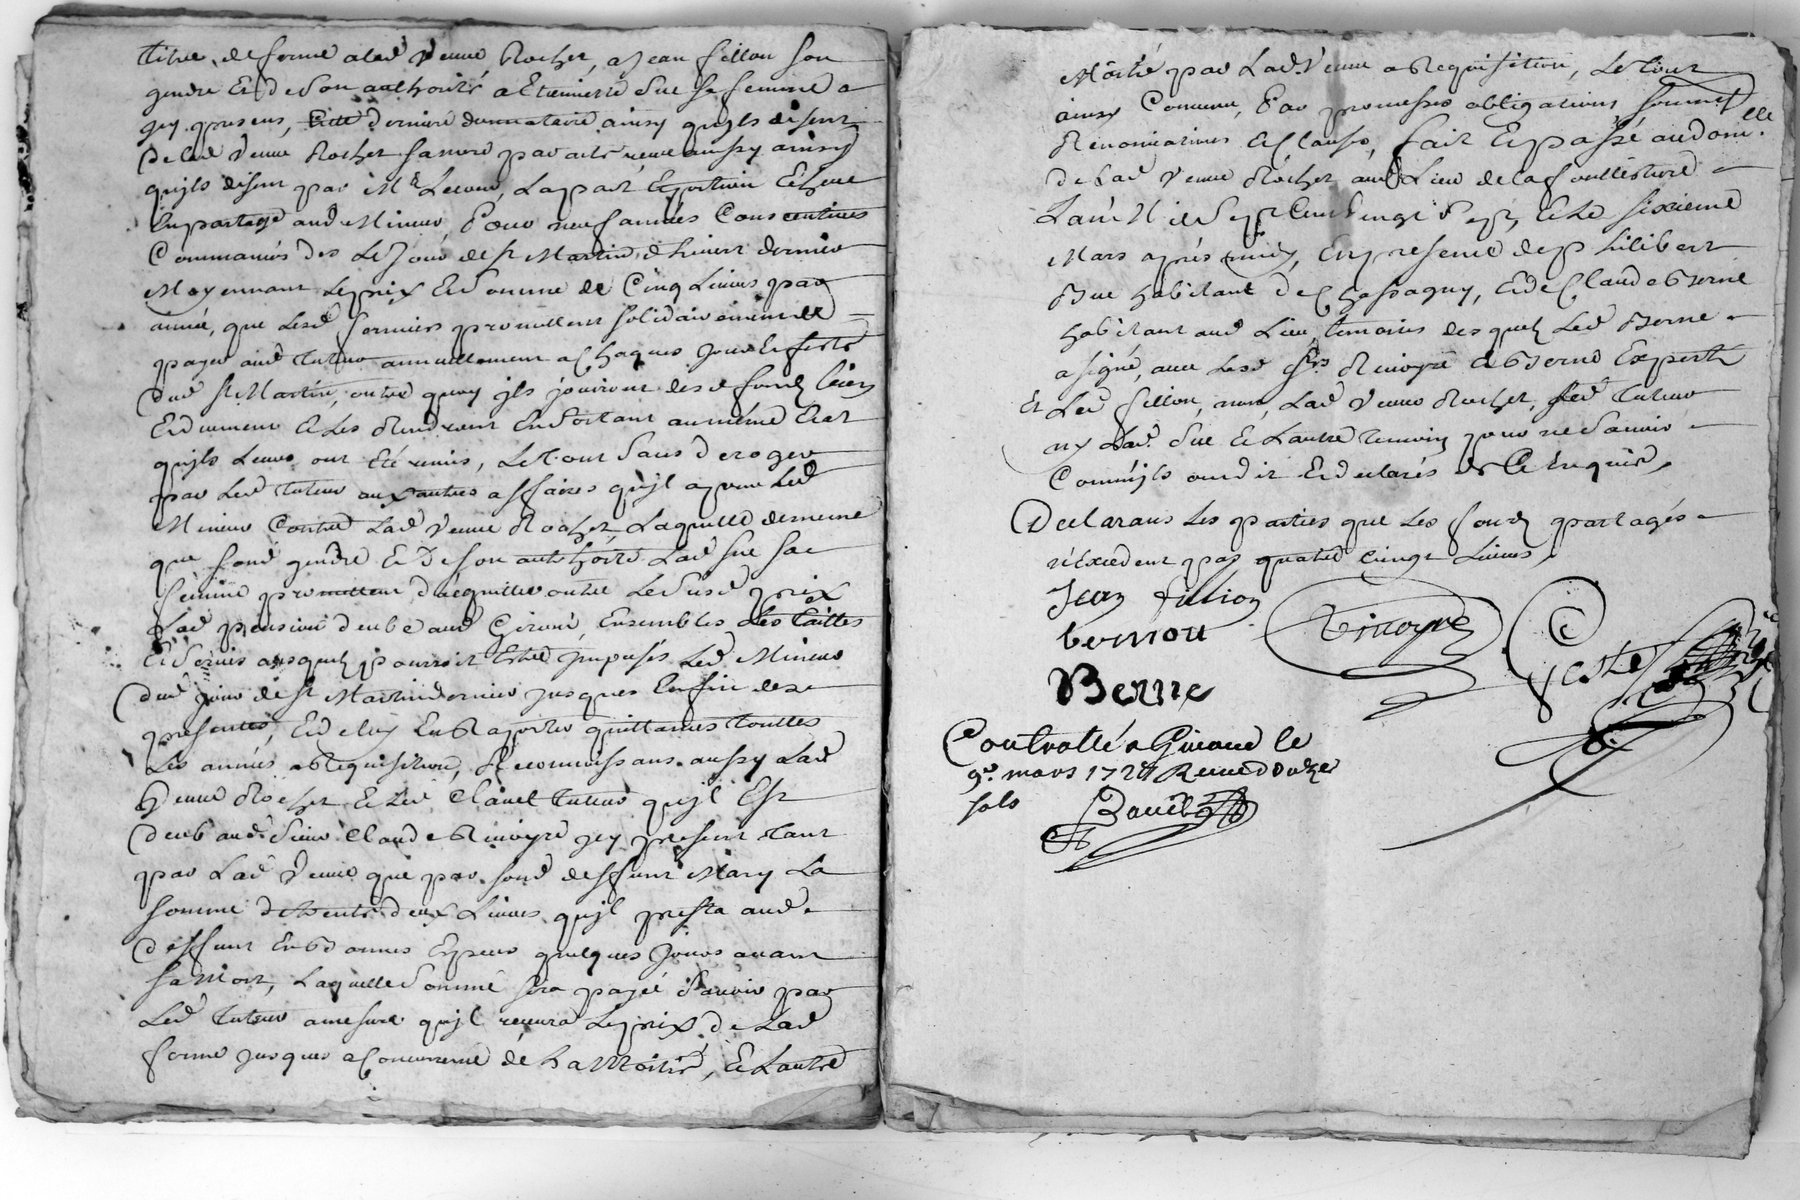 titre de ferme a lad. Veuve Rocher, a Jean fillon son
gendre Et de Son authorité a Etiennette Sue sa femme a
jcy presens, Cette derniere donnataire ainsy quils disent
De lad Veuve Rocher sa mere par acte receu aussy ainsy
quils disent par Mr Lecour, La part Et portion Echeue
En partage aud Mineur, Pour neuf années Consecutives
Commancés des Le Jour de St Martin d'hivert dernier
Moyennant Le prix Et somme de Cinq Livres par
année, que Lesd fermiers promettent solidairement de
payer aud tuteur annuellement a chaques jour Et feste
Dud St Martin, outre quoy jls jouiront desd fonds bien
Et duement Et Les Rendront En Sortant au même Etat
quils Leurs ont Eté remis, Le tout Sans deroger
par Led tuteur aux autres affaires qu'jl a pour Led
Mineur Contre Lad Veuve Rocher, Laquelle de meme
que sond gendre Et De son authorité Lad Sue sa
femme promettent d'acquitter outre Le Susd prix
Lad pension deube aud Giroud, Ensembles Les tailles
Et Servis ausquels pourroit Estre jmposés Led Mineur
Dud jour de St Martin dernier jusques En fin des
presentes, Et de luy En Raporter quittances touttes
Les années a Requisition, Reconnoissans aussy Lad
Veuve Rocher Et Led Clavel tuteur qu'jl Est
Deub aud. Sieur Claude Rivoyre jcy present tant
par Lad Veuve que par sond deffunt Mary La
somme de trente deux Livres qu'jl presta aud
Deffunt En bonnes Especes quelques Jours avant
sa Mort, Laquelle Somme sera payée Sauoir par
Led tuteur a mesure qu'jl recevra Le prix de Lad
ferme jusques a Concurrence de La Moitié, Et L'autre
Moitié par Lad. Veuve a Requisition, Le tout
ainsy Convenu, Par promesses obligations soumis.
Renonciations Et Clauses, fait Et passé au domlle.
De Lad Veuve Rocher aud Lieu de la fouillouse
L'an Mil Sept Cent Vingt Sept, Et Le sixieme
Mars après midy, En presence de philibert
Bue habitant de Chassagny, Et de Claude Berne
habitant aud Lieu, temoins desquels Led Berne
a signé, avec Lesd Srs Rivoyre Et Berne Experts
Et Led fillon, non, Lad Veuve Rocher, Led tuteur
ny Lad. Sue Et L'autre temoin pour ne Sauoir
Comm'jls ont dit Et declarés de Ce Enquis,
Declarans Les parties que Les fonds partagés
n'Excedent pas quatre vingt Livres,
Jean fillion
bernou Rivoyre
Berne
Controllé a Givord le
9e. mars 1727 Receu douze
sols